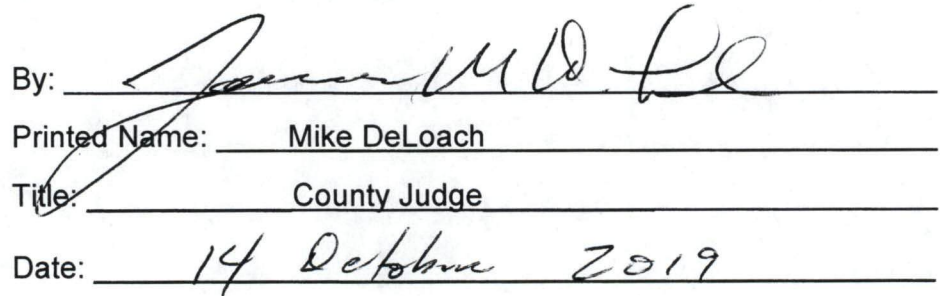 By:
Printed Name: Mike DeLoach
Title: County Judge
Date: 14 October 2019